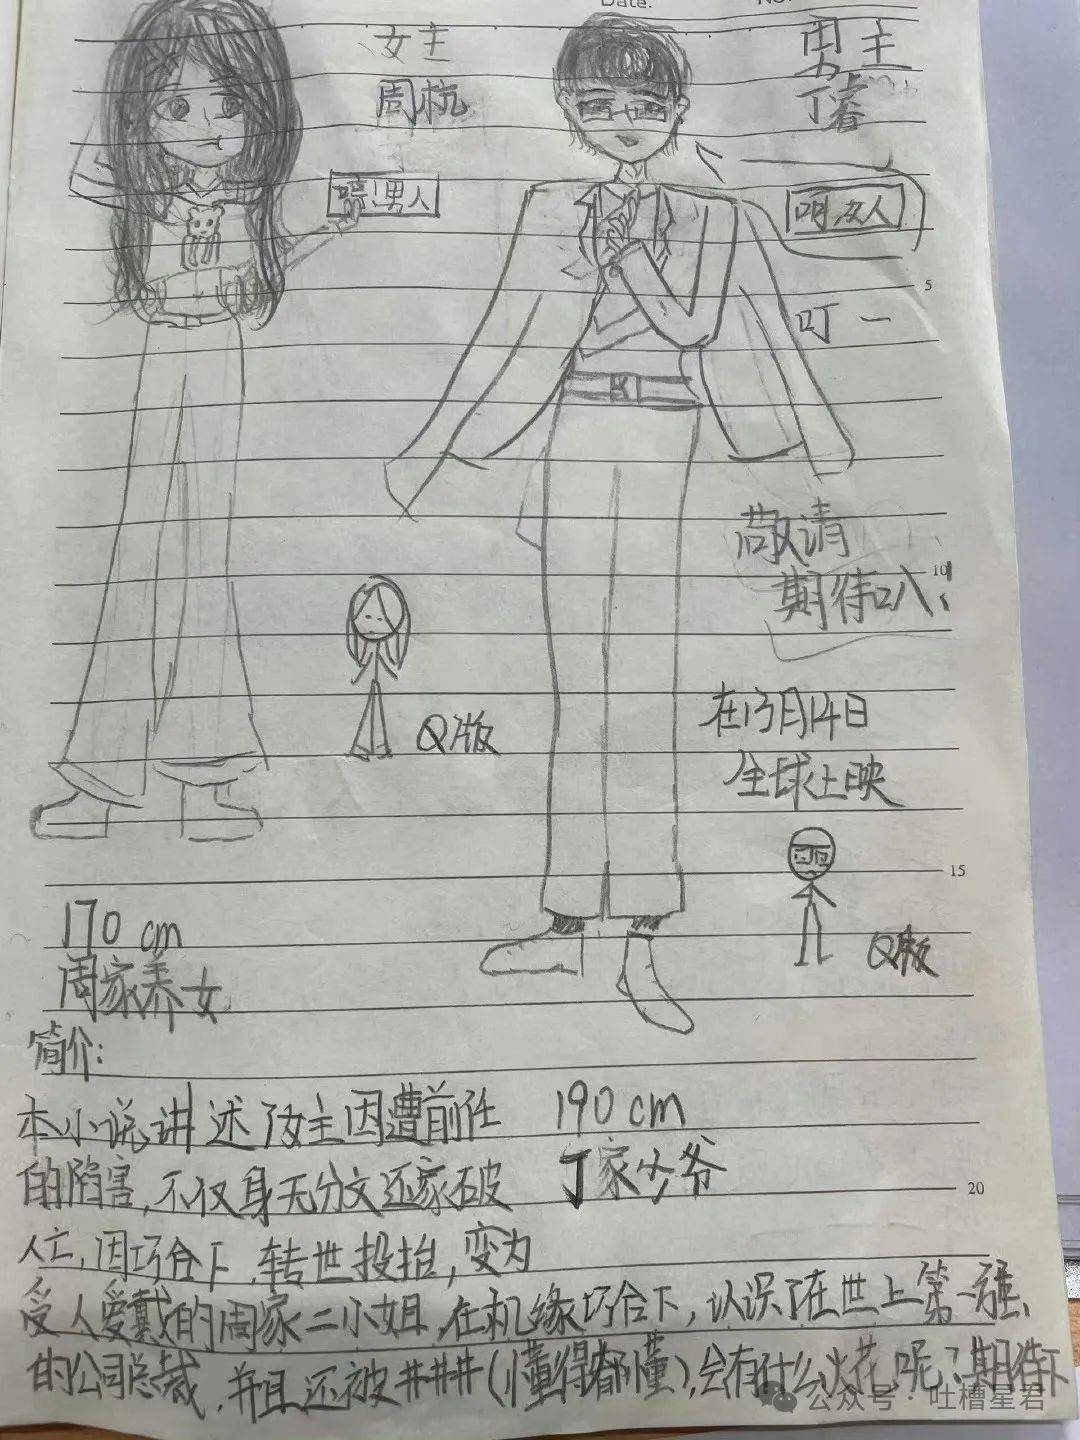 Date.
No.
女主
周杭
哼!男人
男主
丁睿
呵,女人
叮一
5
敬请
期待叭、
10
在13月14日
全球上映
Q版
15
Q版
170 cm
周家养女
190 cm
丁家少爷
20
简介:
本小说讲述了女主因遭前任
的陷害,不仅身无分文还家破
人亡,因巧合下,转世投抬,变为
受人爱戴的周家二小姐,在机缘巧合下,认识了在世上第一强、
的公司总裁,并且还被###(懂得都懂),会有什么火花呢?期待下
公众号·吐槽星君